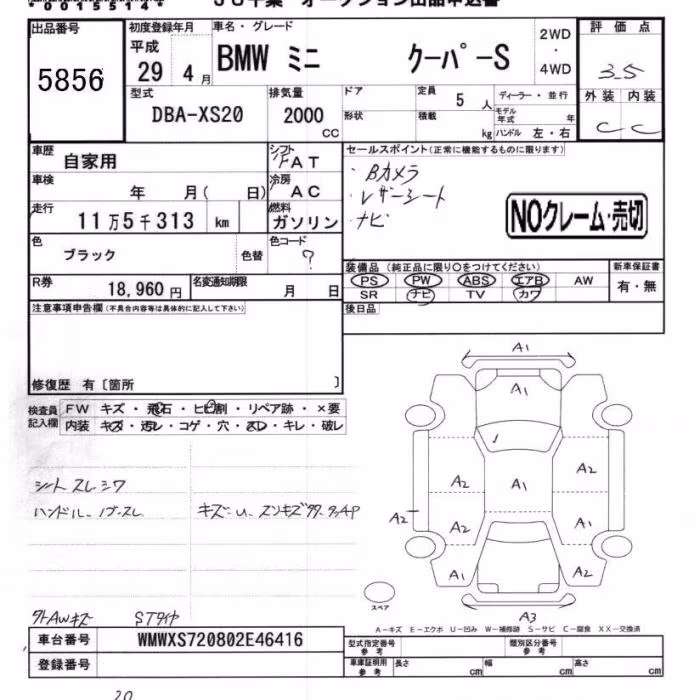 0015514
出品番号 初度登録年月 車名・グレード 2WD 評価点
5856 平成 29 4月 BMW ミニ クーパーS ・ 4WD 3.5
型式 排気量 ドア 定員 5人 ディーラー・並行 外装 内装
DBA-XS20 2000 CC 形状 積載 kg モデル年式 年 C C
ハンドル 左・右
車歴 自家用 シフト FAT セールスポイント(正常に機能するものに限ります)
車検 年 月( 日) 冷房 AC ・Bカメラ
走行 11万5千313 km 燃料 ガソリン ・レザーシート
・ナビ NOクレーム・売切
色 ブラック 色替 色コード ?
装備品(純正品に限り○をつけてください) 新車保証書
R券 18,960円 名変通知期限 月 日 PS PW ABS エアB AW 有・無
SR ナビ TV カワ
注意事項申告欄(不具合内容等は具体的に記入して下さい) 後日品
修復歴 有〔箇所 〕
検査員 FW キズ・飛石・ヒビ割・リペア跡・×要
記入欄 内装 キズ・汚レ・コゲ・穴・スレ・キレ・破レ
A1
A1
A2 A1 A2
A2 A2 A1
A1 A2
シートスレシワ
ハンドル
キズ・U
スペア
A3
外AWキズ STタイヤ
A-キズ E-エクボ U-凹み W-補修跡 S-サビ C-腐食 XX-交換済
車台番号 WMWXS720802E46416 型式指定番号 参考 類別区分番号 参考
登録番号 車庫証明用 参考 長さ cm 幅 cm 高さ cm
20